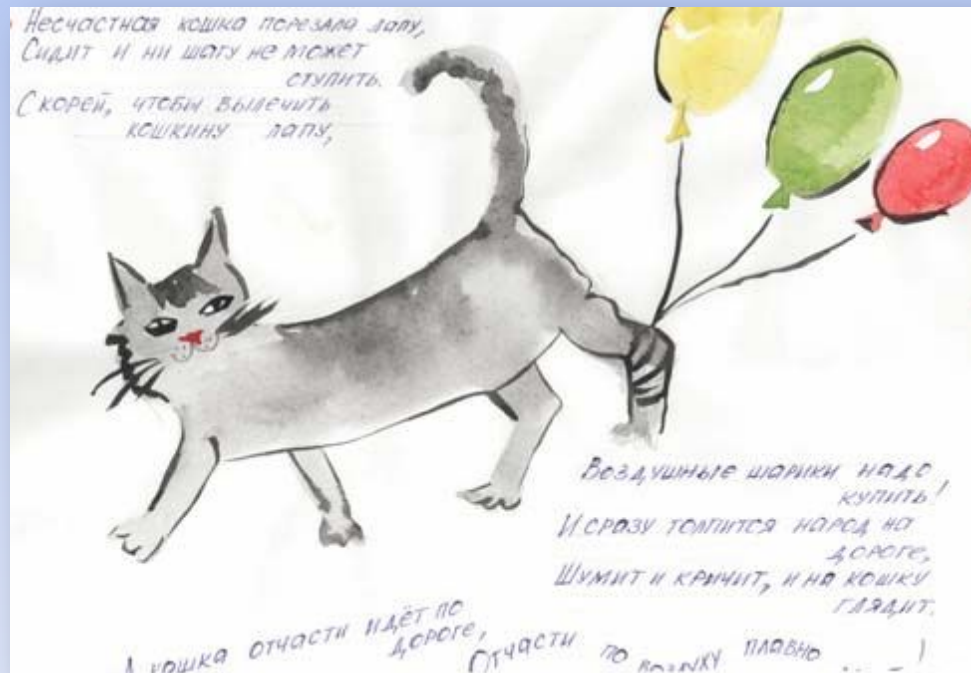 Несчастная кошка порезала лапу,
Сидит и ни шагу не может
ступить.
Скорей, чтобы вылечить
кошкину лапу,
Воздушные шарики надо
купить!
И сразу толпится народ на
дороге,
Шумит и кричит, и на кошку
глядит.
А кошка отчасти идёт по
дороге,
Отчасти по воздуху плавно
!